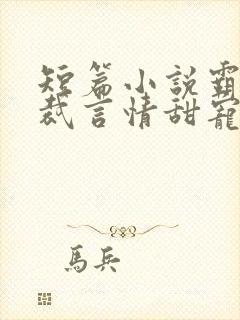 短篇小說霸
裁言情甜寵
馬兵